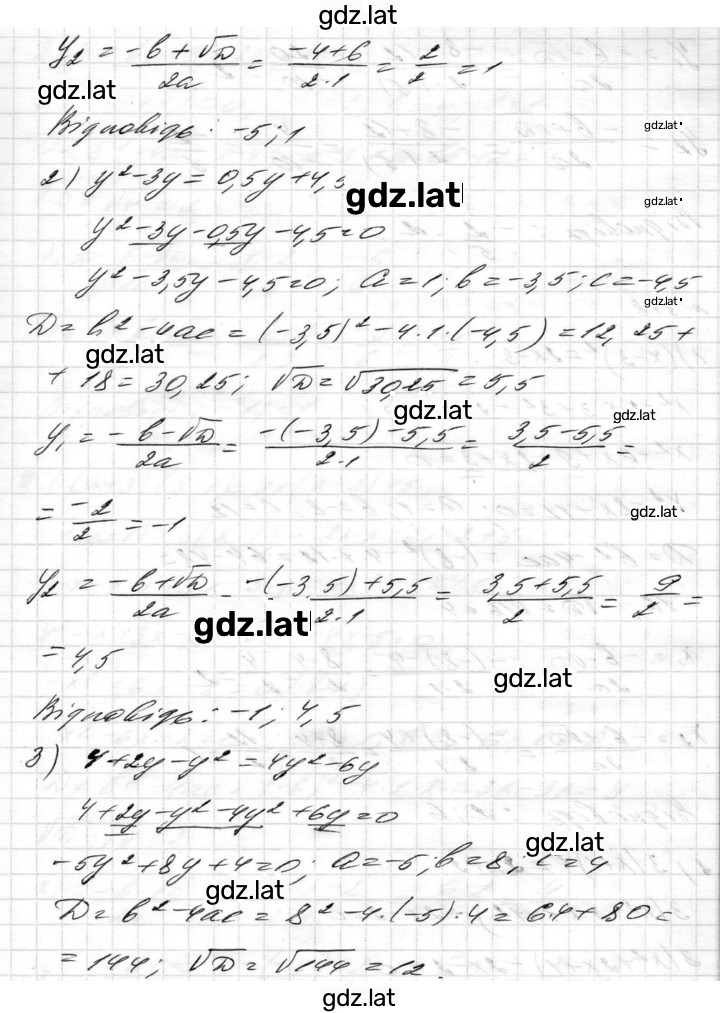 gdz.lat
y₂ = (-b+√D)/(2a) = (-4+6)/(2·1) = 2/2 = 1
gdz.lat
Відповідь: -5; 1
gdz.lat
2) y²-3y = 0,5y+4,5
gdz.lat
gdz.lat
y²-3y-0,5y-4,5=0
y²-3,5y-4,5=0; a=1; b=-3,5; c=-4,5
gdz.lat
D=b²-4ac=(-3,5)²-4·1·(-4,5)=12,25+
gdz.lat
+18=30,25; √D=√30,25=5,5
gdz.lat
gdz.lat
y₁ = (-b-√D)/(2a) = (-(-3,5)-5,5)/(2·1) = (3,5-5,5)/2 =
gdz.lat
= -2/2 = -1
y₂ = (-b+√D)/(2a) = (-(-3,5)+5,5)/(2·1) = (3,5+5,5)/2 = 9/2 =
gdz.lat
= 4,5
gdz.lat
Відповідь: -1; 4,5
3) 4+2y-y²=4y²-6y
4+2y-y²-4y²+6y=0
gdz.lat
-5y²+8y+4=0; a=-5; b=8; c=4
gdz.lat
D=b²-4ac=8²-4·(-5)·4=64+80=
=144; √D=√144=12.
gdz.lat